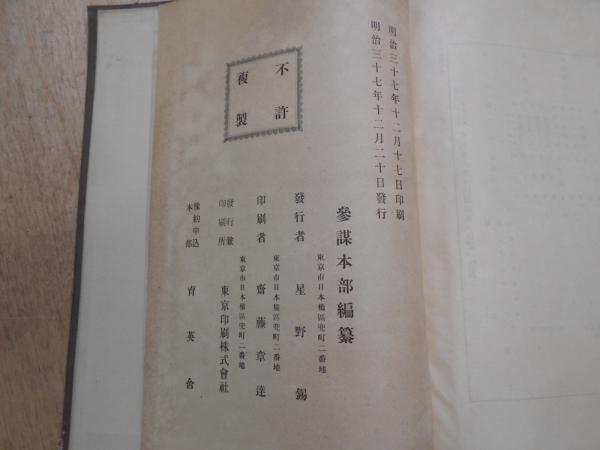 明治三十七年十二月十七日印刷
明治三十七年十二月二十日發行
不許
複製
參謀本部編纂
東京市日本橋區兜町二番地
發行者 星野錫
東京市日本橋區兜町二番地
印刷者 齋藤章達
東京市日本橋區兜町二番地
發行兼
印刷所 東京印刷株式會社
豫約申込
本部 育英舍